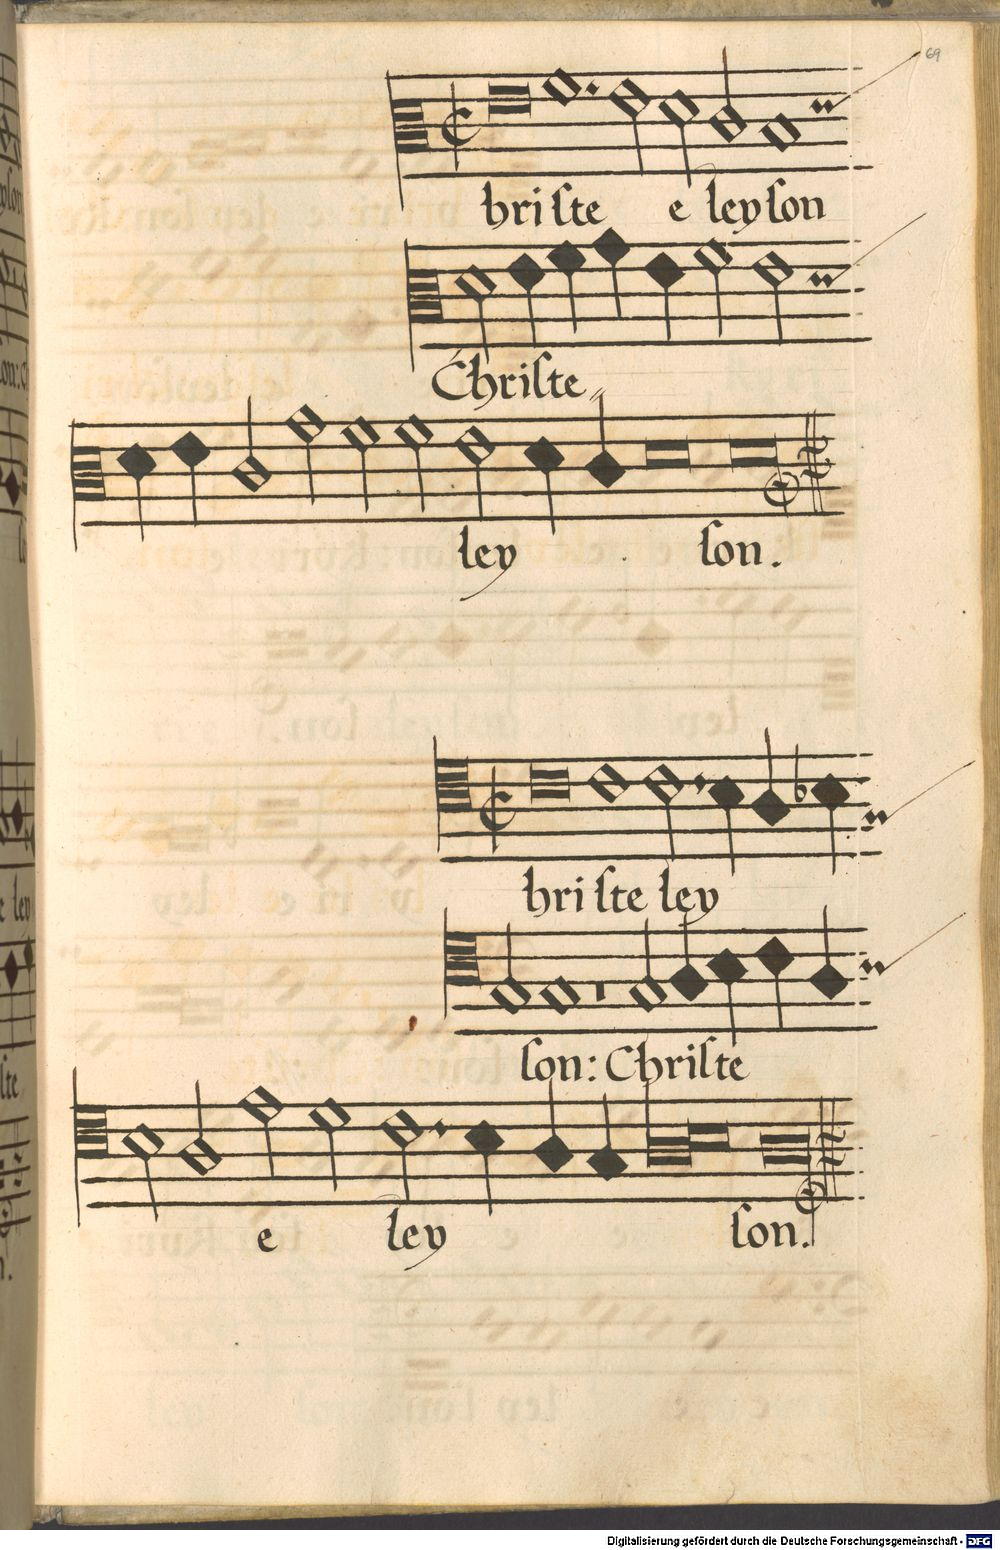 69
hriſte e leyſon
Chriſte
ley ſon.
hriſte ley
ſon: Chriſte
e ley ſon.
Digitalisierung gefördert durch die Deutsche Forschungsgemeinschaft - DFG